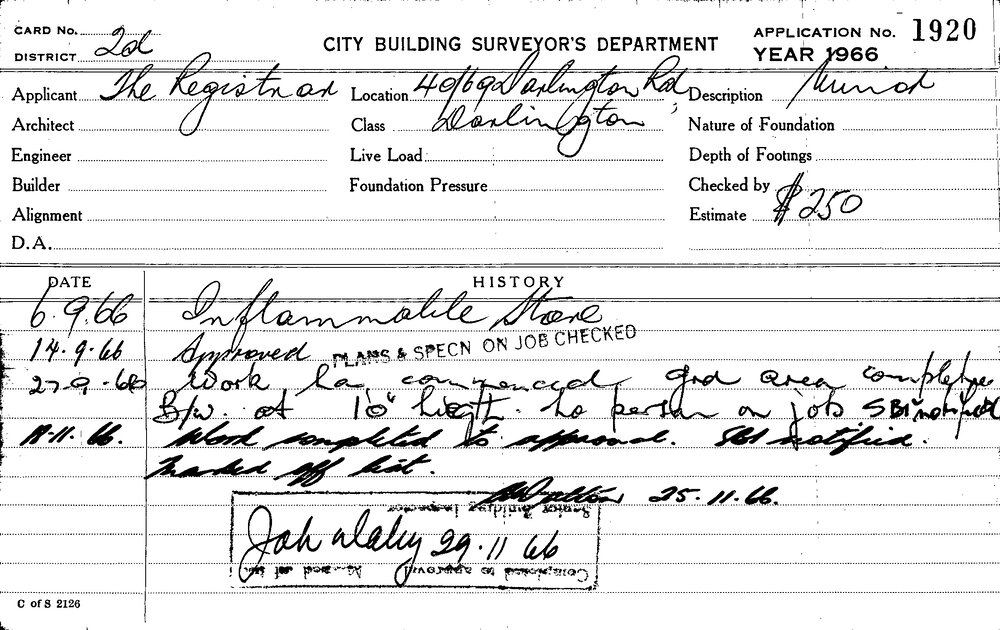 CARD No. 2d
DISTRICT
CITY BUILDING SURVEYOR'S DEPARTMENT
APPLICATION No. 1920
YEAR 1966
Applicant The Registrar
Location 40/69 Darlington Rd,
Description Minor
Architect
Class Darlington
Nature of Foundation
Engineer
Live Load
Depth of Footings
Builder
Foundation Pressure
Checked by
Alignment
Estimate $250
D.A.
DATE HISTORY
6.9.66 Inflammable Store
14.9.66 Approved PLANS & SPECN ON JOB CHECKED
27.9.66 Work has commenced, grd area complete
B/w. at 10" height. No person on job SBI notified
11.66. Work completed to approval. SBI notified.
Marked off list.
25.11.66.
Senior Building Inspector
29.11 66
Completed to approval Marked off list
C of S 2126